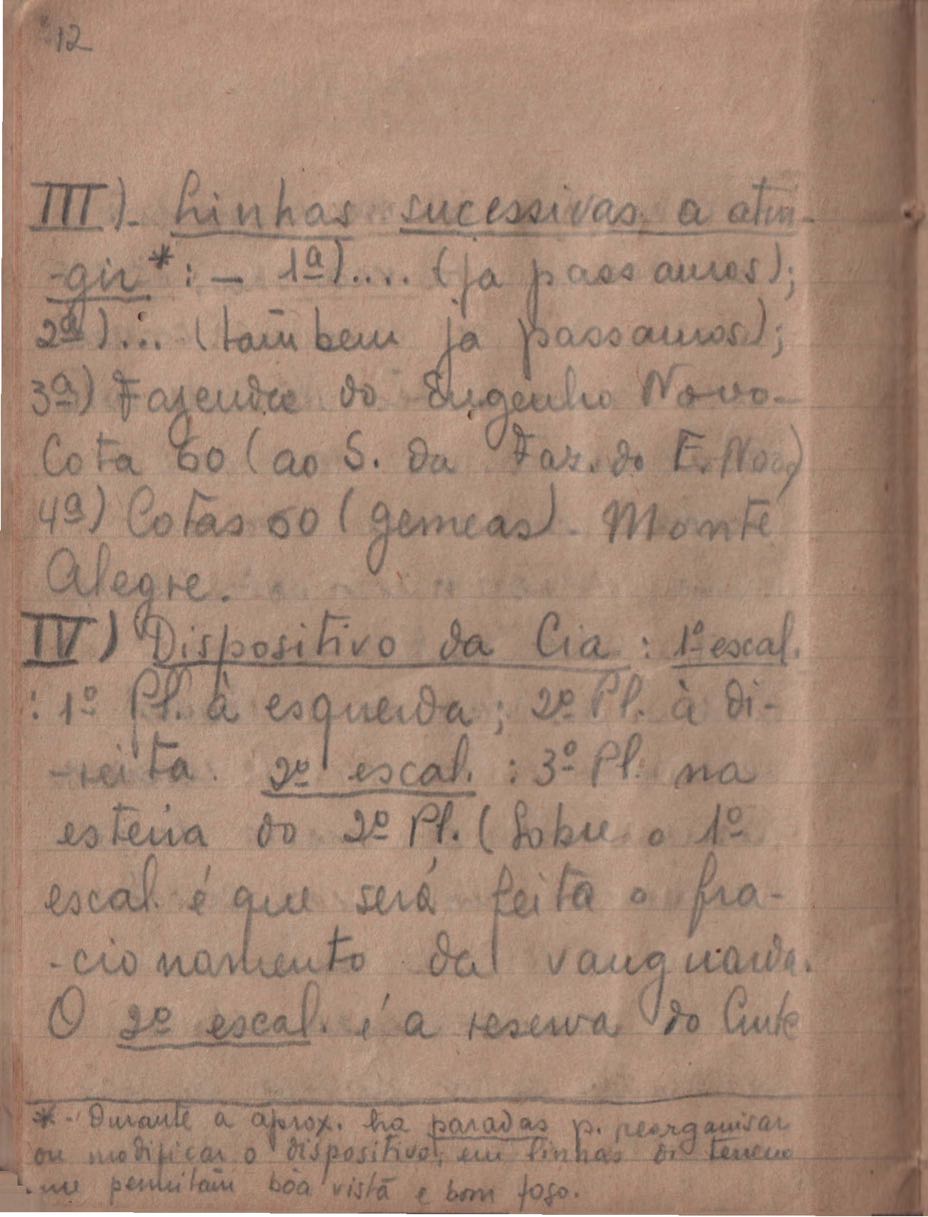 12
III)- Linhas sucessivas a atin-
-gir * : - 1ª).... (ja passamos);
2ª)... (tambem ja passamos);
3ª) Fazenda do Engenho Novo -
Cota 60 (ao S. da Faz. do E. Novo)
4ª) Cotas 60 (gemeas) - Monte
Alegre.
IV) Dispositivo da Cia : 1º escal.
: 1º Pl. à esquerda; 2º Pl. à di-
-reita. 2º escal. : 3º Pl. na
esteira do 2º Pl. (Sobre o 1º
escal. é que será feita o fra-
-cionamento da vanguarda.
O 2º escal. é a reserva do Cmte
* - Durante a aprox. ha paradas p. reorganisar
ou modificar o dispositivo, em linhas di terreno
que permitam bôa vista e bom fogo.